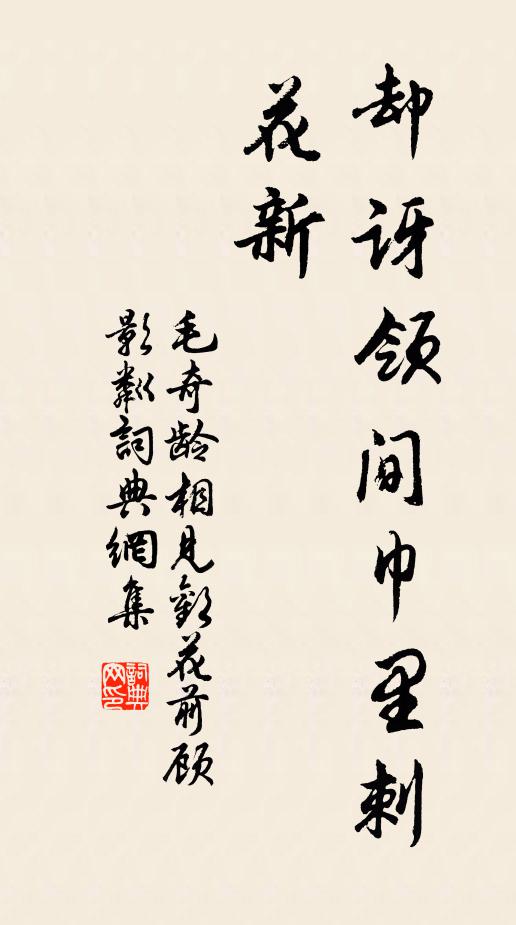 却讶领间巾里刺
花新
毛奇龄相见欢花前顾
影粼詞典網集
詞典
网印